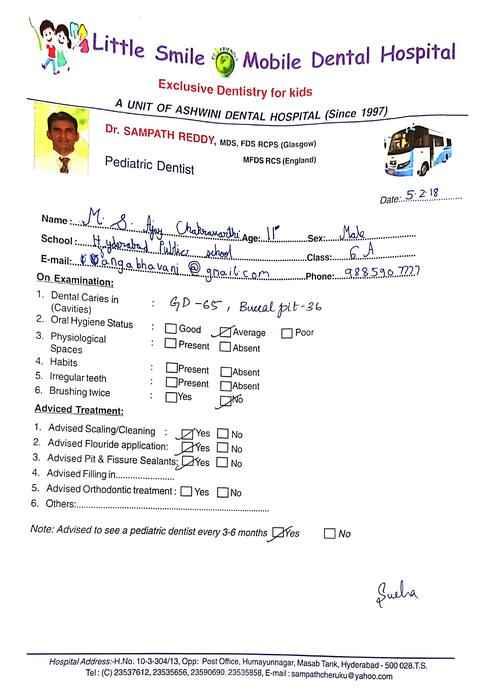 Little Smile Mobile Dental Hospital
Exclusive Dentistry for kids
A UNIT OF ASHWINI DENTAL HOSPITAL (Since 1997)
Dr. SAMPATH REDDY, MDS, FDS RCPS (Glasgow)
MFDS RCS (England)
Pediatric Dentist
Date: 5.2.18
Name: M. S. Ajay Chakravarthi Age: 11 Sex: Male
School: Hyderabad Public school Class: 6 A
E-mail: gangabhavani @ gmail.com Phone:
On Examination:
1. Dental Caries in : GD-65, Buccal pit-36
(Cavities)
2. Oral Hygiene Status : Good Average Poor
3. Physiological : Present Absent
Spaces
4. Habits : Present Absent
5. Irregular teeth : Present Absent
6. Brushing twice : Yes No
Adviced Treatment:
1. Advised Scaling/Cleaning : Yes No
2. Advised Flouride application: Yes No
3. Advised Pit & Fissure Sealants: Yes No
4. Advised Filling in....................
5. Advised Orthodontic treatment : Yes No
6. Others:....................
Note: Advised to see a pediatric dentist every 3-6 months Yes No
Hospital Address:-H.No. 10-3-304/13, Opp: Post Office, Humayunnagar, Masab Tank, Hyderabad - 500 028.T.S.
Tel : (C) 23537612, 23535656, 23590690, 23535858, E-mail : sampathcheruku@yahoo.com